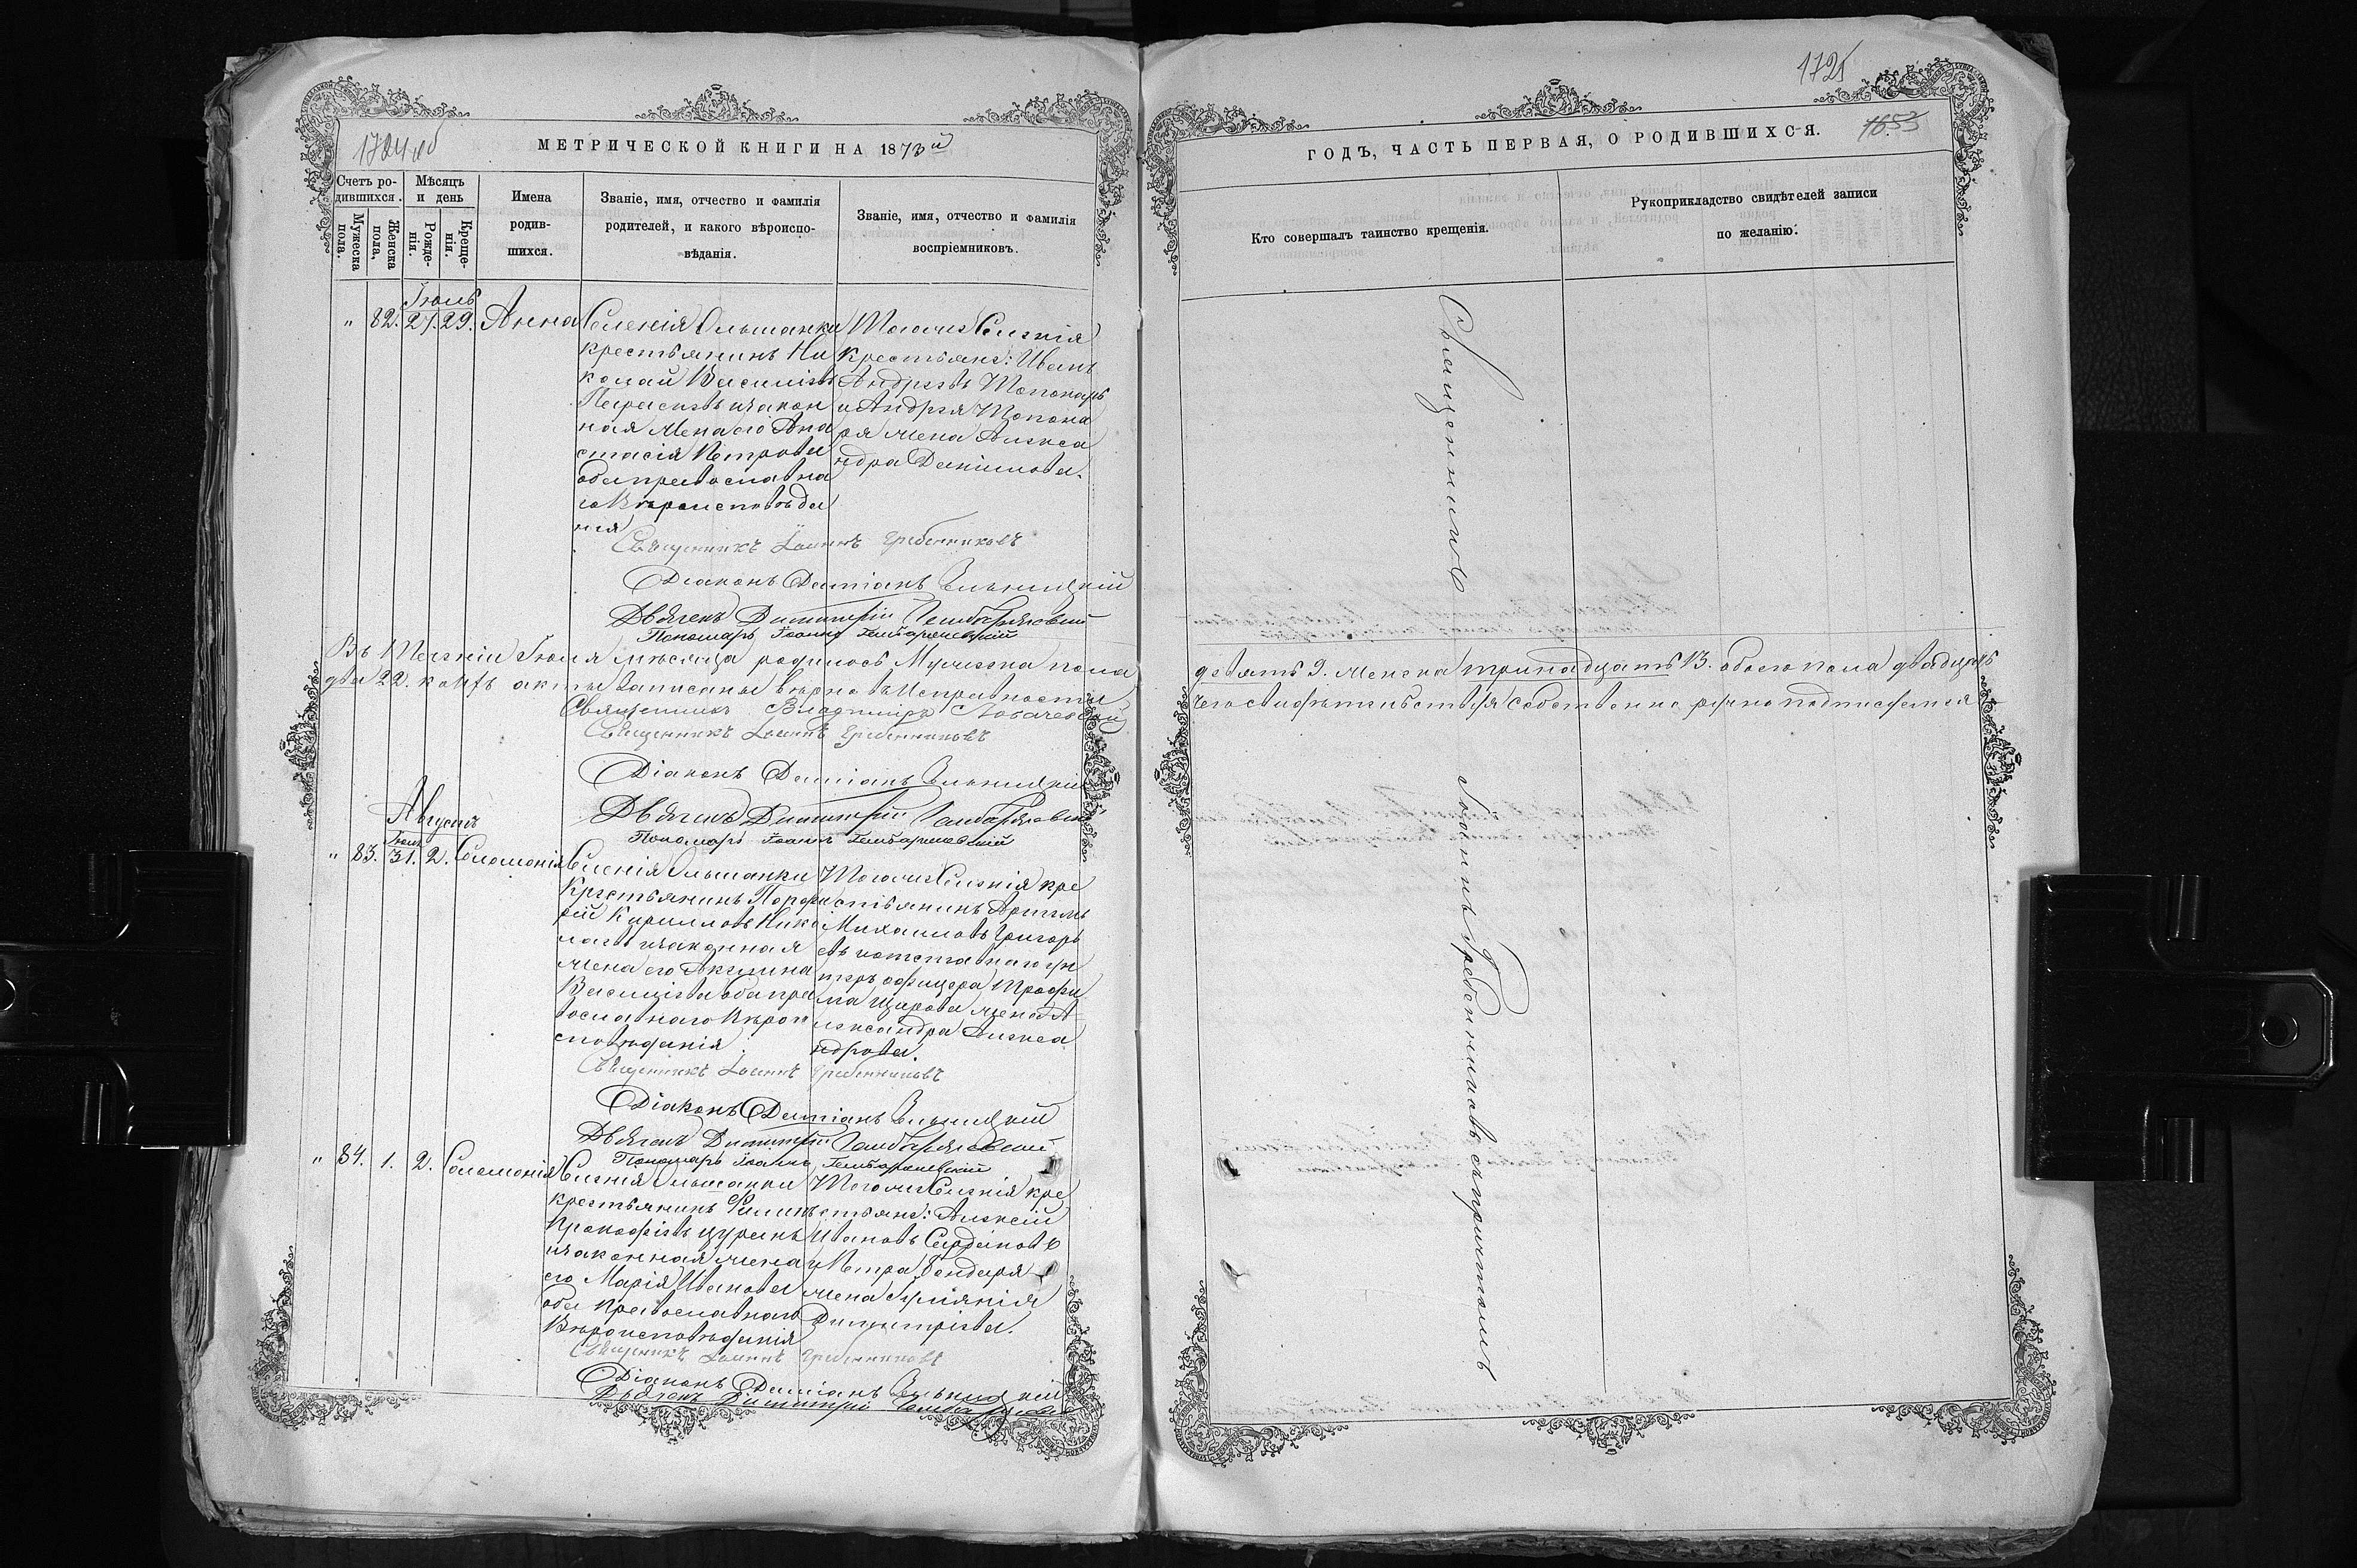 1724 об
МЕТРИЧЕСКОЙ КНИГИ НА 1873й
Счетъ ро-
дившихся.
Мужеска
пола.
Женска
пола.
Мѣсяцъ
и день
Рожде-
нія.
Креще-
нія.
Имена
родив-
шихся.
Званіе, имя, отчество и фамилія
родителей, и какого вѣроиспо-
вѣданія.
Званіе, имя, отчество и фамилія
воспріемниковъ.
Іюль
" 82. 27. 29. Анна
Селенія Ольшанки
крестьянинъ Ни
колай Васильевъ
изакон
ная жена его Ана
стасія Петрова
оба православна
го Вѣроисповѣда
нія
Тогоже Селенія
Крестьяне: Иванъ
Андреевъ Топонарь
и Андрея Топона
ря жена Алекса
ндра Данилова.
Священникъ Іоаннъ Гребенниковъ
Діаконъ Даміанъ Ильницкій
Дьячекъ Димитрій
Пономарь Іоаннъ
Въ теченіи Іюля мѣсяца родилось Мужеска пола
два 22. коихъ акты Записаны вѣрно въ Исправности
Священникъ Владиміръ Лобачевскій
Священникъ Іоаннъ Гребенниковъ
Діаконъ Даміанъ Ильницкій
Дьячекъ Димитрій
Пономарь Іоаннъ
Августъ
Іюль
" 83. 31. 2. Соломонія
Селенія Ольшанки
Крестьянинъ Порфи
рій Кирилловъ Нико
лаевъ изаконная
жена его Акилина
Васильева оба пра
вославнаго Вѣрои
сповѣданія.
Тогоже Селенія кре
стьянинъ Артемъ
Михаиловъ Григорь
евъ иотставнаго ун
теръ офицера Трофи
ма Щирова жена А
лександра Алекса
ндрова.
Священникъ Іоаннъ Гребенниковъ
Діаконъ Даміанъ Ильницкій
Дьячекъ Димитрій
Пономарь Іоаннъ
" 84. 1. 2. Соломонія
Селенія Ольшанки
крестьянинъ Филипъ
Прокофіевъ Цуранъ
изаконная жена
его Марія Иванова
оба православнаго
Вѣроисповѣданія
Тогоже Селенія кре
стьяне: Алексій
Ивановъ
и Петра Бондаря
жена
Димитріева.
Священникъ Іоаннъ Гребенниковъ
Діаконъ Даміанъ Ильницкій
Дьячекъ Димитрій
1725
1653
ГОДЪ, ЧАСТЬ ПЕРВАЯ, О РОДИВШИХСЯ.
Кто совершалъ таинство крещенія.
Рукоприкладство свидѣтелей записи
по желанію.
Священникъ
девять 9. женска тринадцать 13. обоего пола двадцать
чего свидѣтельствуя собственно ручно подписуемся
Іоаннъ Гребенниковъ съ причтомъ